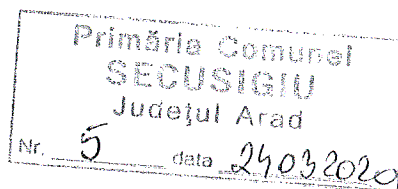 Primăria Comunei
SECUSIGIU
Județul Arad
Nr. 5 data 24032020